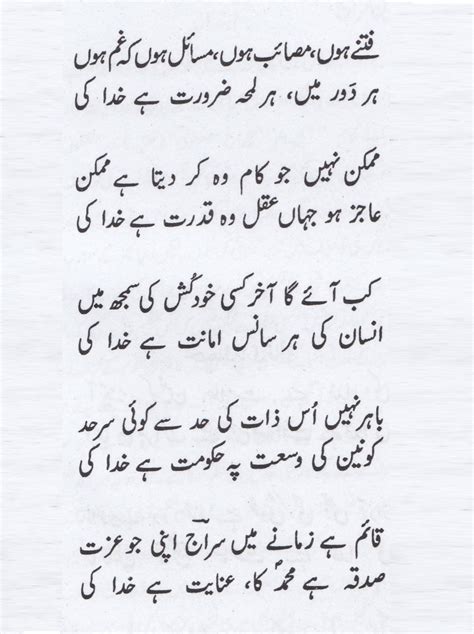 فتنے ہوں، مصائب ہوں، مسائل ہوں کہ غم ہوں
ہر دَور میں، ہر لمحہ ضرورت ہے خدا کی
ممکن نہیں جو کام وہ کر دیتا ہے ممکن
عاجز ہو جہاں عقل وہ قدرت ہے خدا کی
کب آئے گا آخر کسی خودکُش کی سمجھ میں
انسان کی ہر سانس امانت ہے خدا کی
باہر نہیں اُس ذات کی حد سے کوئی سرحد
کونین کی وسعت پہ حکومت ہے خدا کی
قائم ہے زمانے میں سراؔج اپنی جو عزت
صدقہ ہے محمدؐ کا، عنایت ہے خدا کی